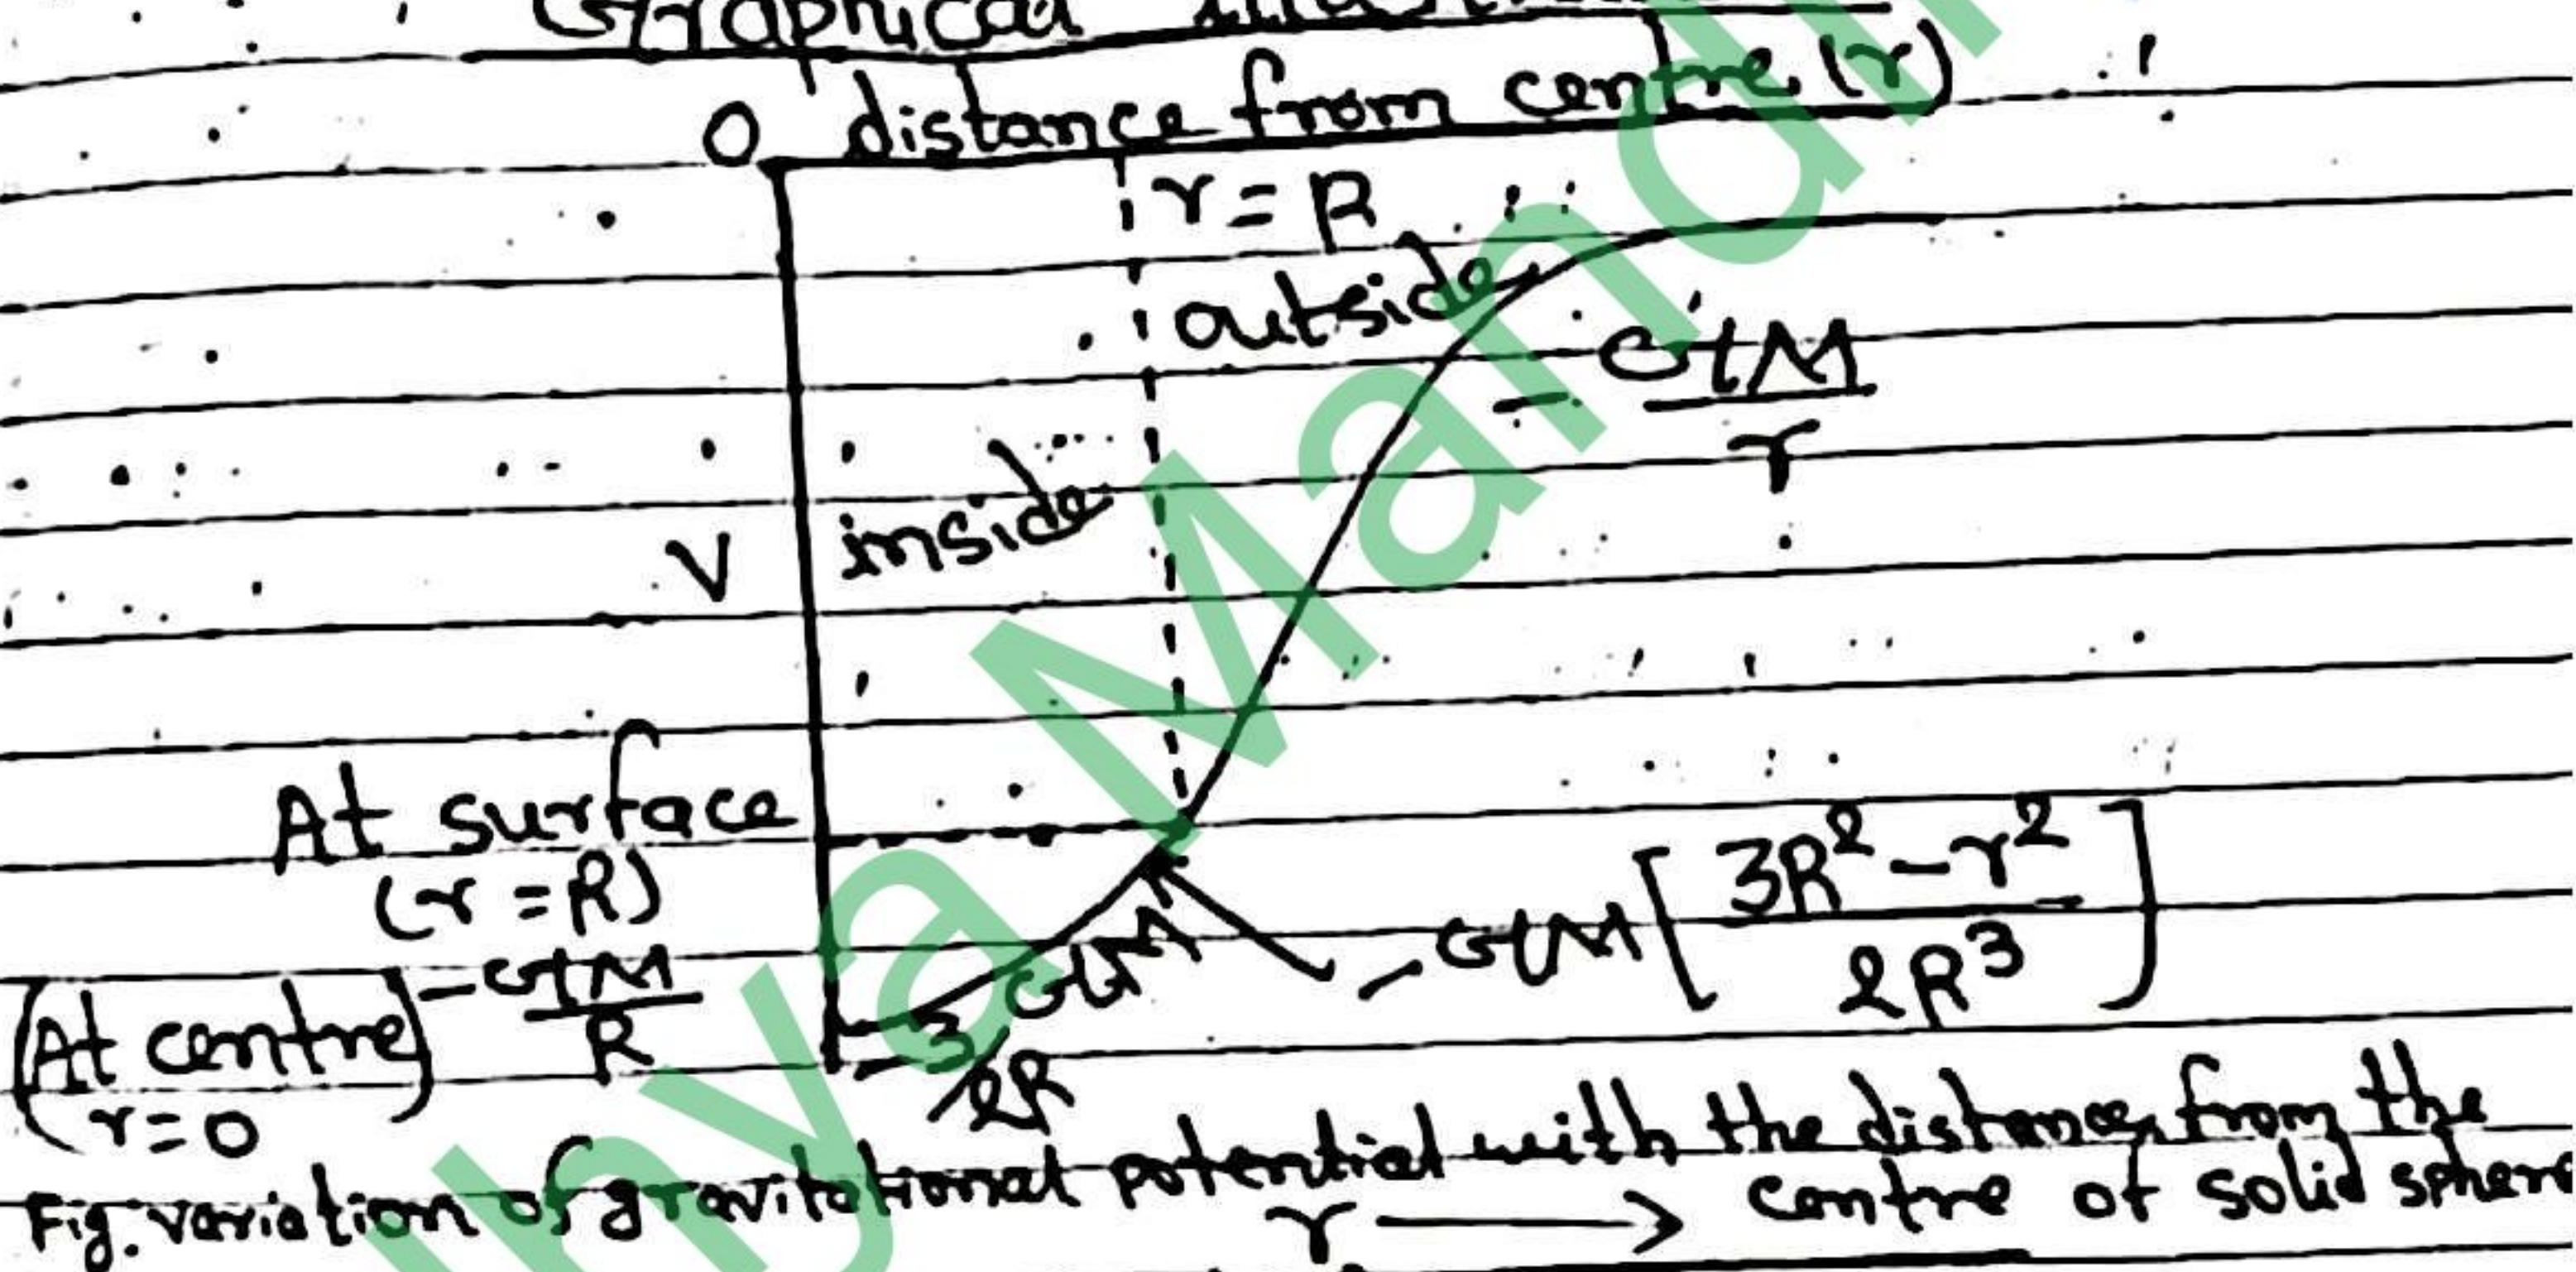 Graphical
O distance from centre (r)
r = R
outside
- GM/r
V inside
At surface
(r = R)
- GM/R
(At centre)
r = 0
- 3/2R GM
- GM [ 3R² - r² / 2R³ ]
Fig. variation of gravitational potential with the distance from the
r → centre of solid sphere
hya Mand